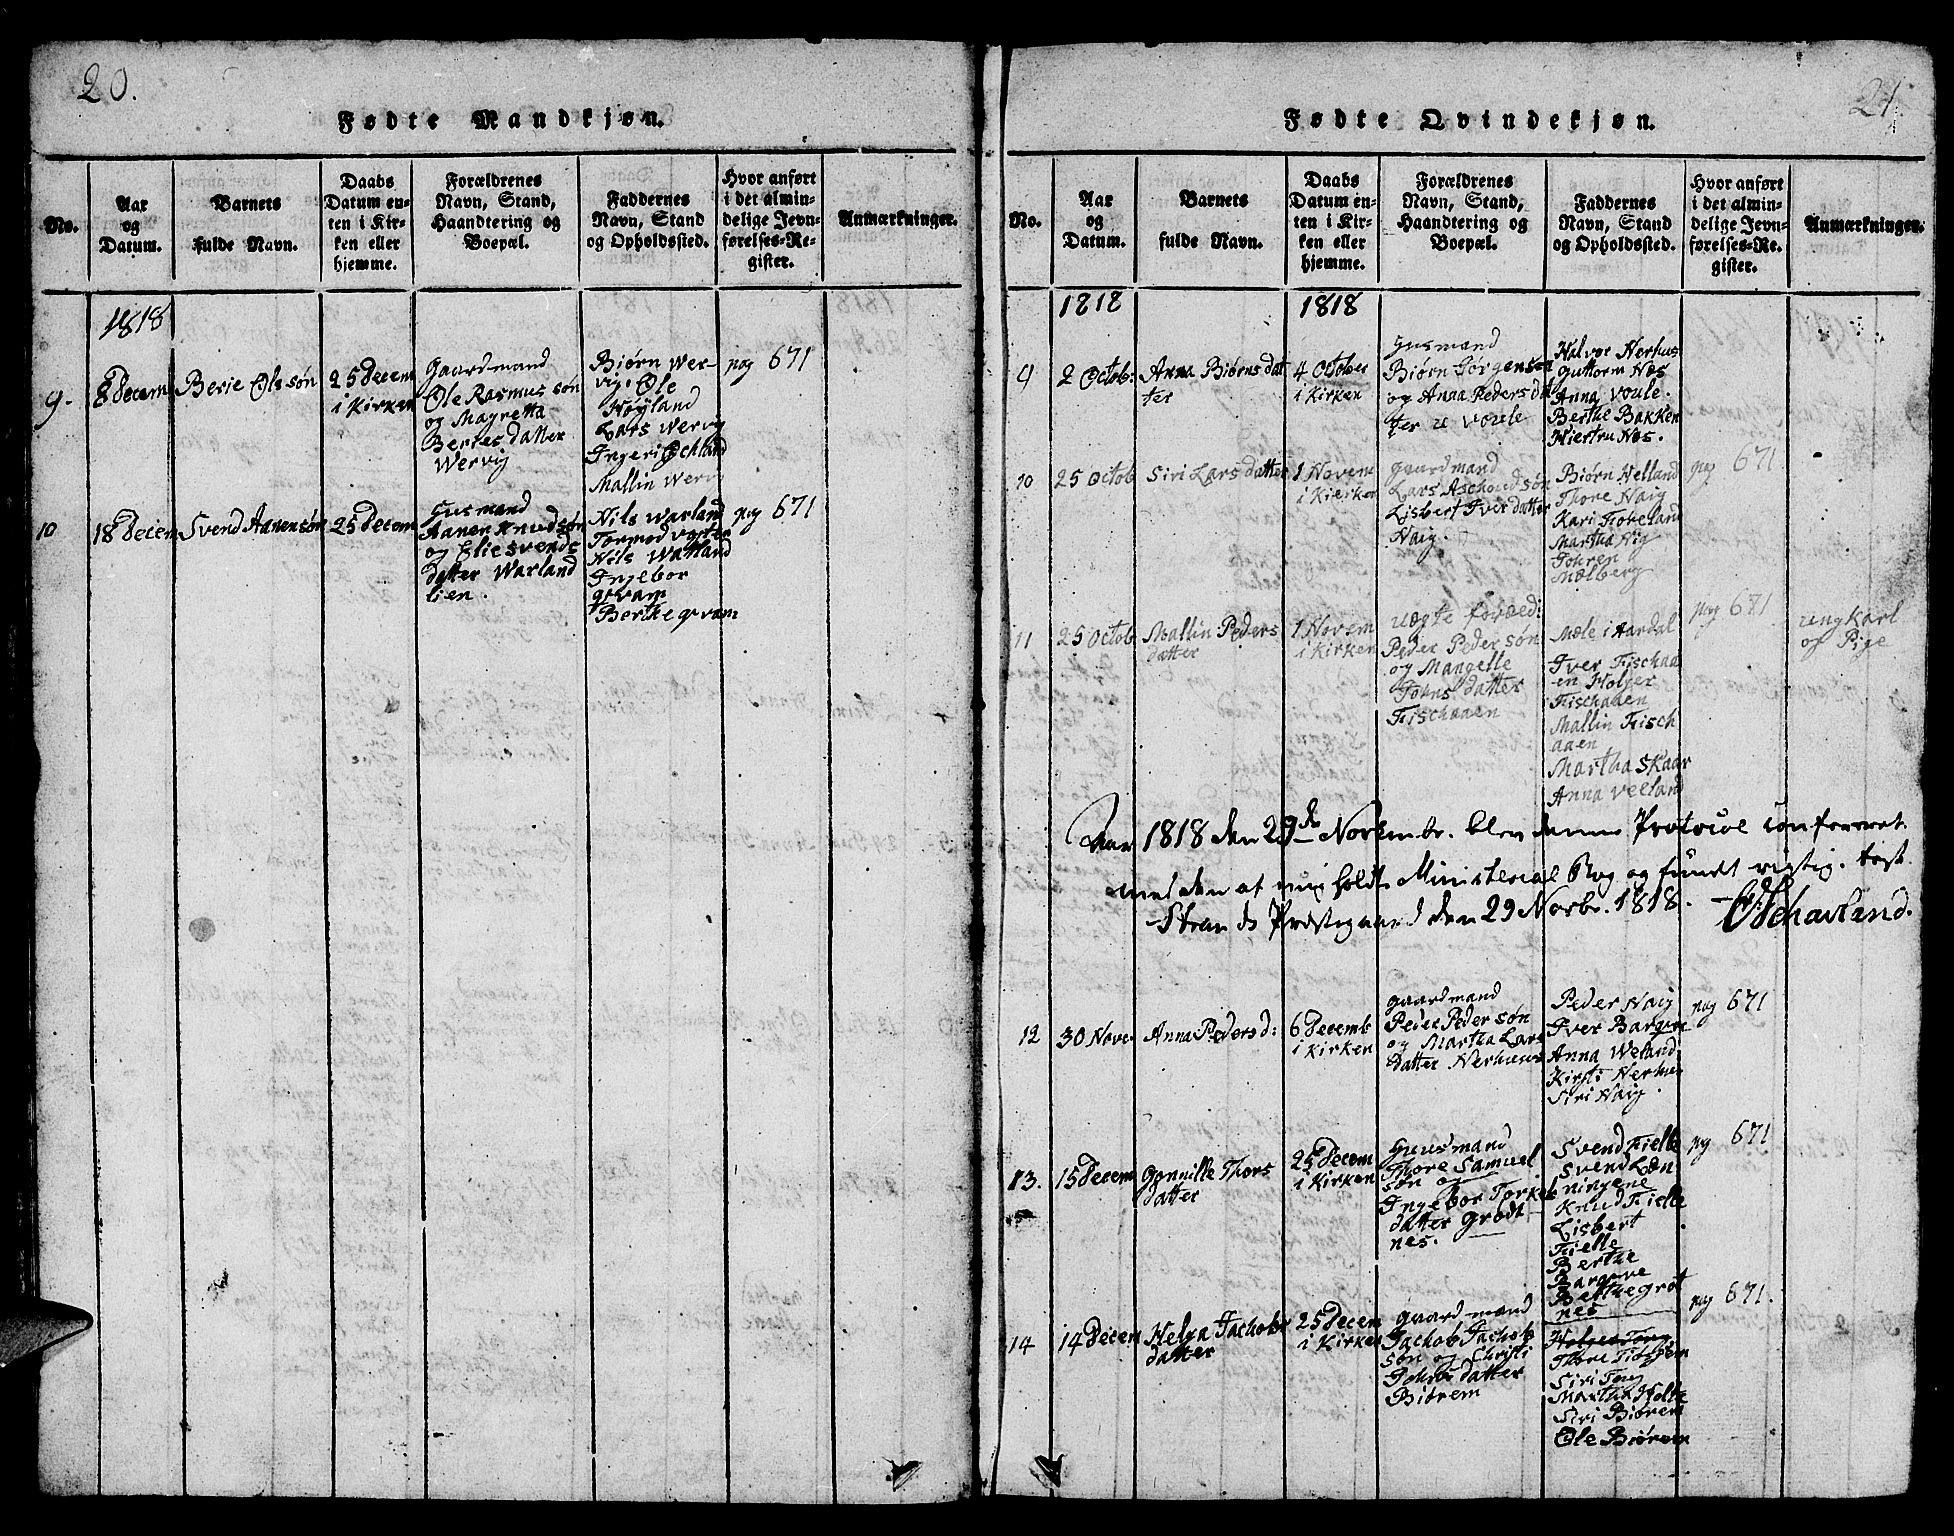 20.
Fødte Mandkjøn.
No.
Aar
og
Datum.
Barnets
fulde Navn.
Daabs
Datum en-
ten i Kir-
ken eller
hjemme.
Forældrenes
Navn, Stand,
Haandtering og
Boepæl.
Faddernes
Navn, Stand
og Opholdssted.
Hvor anført
i det almin-
delige Jevn-
førelses-Re-
gister.
Anmærkninger.
1818
9.
8 Decem
Berie Olssøn
25 Decem
i Kirken
Gaardmand
Ole Rasmussøn
og Magretta
Beriesdatter
Wervig
Biørn Wer-
vig. Ole
Høyland
Lars Wervig
Ingeri Ochland
Mallin Wervi
pag 671
10
18 Decem
Svend Aanensøn
25 Decem
Gusmand
Aanen Knudsøn
og Elie Svends
datter Warland
lien.
Nils Warland
Tormod
Nils Watland
Ingebor
qvam
Berthe qvam
pag 671
21
Fødte Qvindekjøn.
No.
Aar
og
Datum.
Barnets
fulde Navn.
Daabs
Datum en-
ten i Kir-
ken eller
hjemme.
Forældrenes
Navn, Stand,
Haandtering og
Boepæl.
Faddernes
Navn, Stand
og Opholdssted.
Hvor anført
i det almin-
delige Jevn-
førelses-Re-
gister.
Anmærkninger.
1818
1818
9
2 Octob:
Anna Biørns dat
ter
4 October
i Kirken
Gusmand
Biørn Jørgensen
og Anna Peders dat
ter Voule
Halvor Nerhus
Guttorm Nes
Anna Voule.
Berthe Bakken
Hiertru Nes.
10
25 Octob
Siri Larsdatter
1 Novem
i Kierken
Gaardmand
Lars Aschoudsøn
Lisbert Iverdatter
Haig.
Biørn Helland
Thore Haig
Kari Fiskeland
Martha Hig
Johren
Mælberg
pag 671
11
25 Octob
Mallin Peders
datter
1 Novem
i Kirken
uegte foræd:
Peder Pedersøn
og Mangelle
Johnsdatter
Fischaaen
Mæle i Aardal
Iver Fischaa
en Holger
Fischaaen
Mallin Fisch
aaen
Martha Skaar
Anna Veeland
pag 671
ungkarl
og Pige
Aar 1818 den 29de Novembr. blev denne Protocol confereret
med den af mig holdte Ministerial Bog og fundet rigtig. test.
Strands Præstegaard den 29 Novbr. 1818.
12
30 Nove
Anna Pedersd:
6 Decemb
i Kirken
Gaardmand
Peder Pedersøn
og Martha Lars
datter Nerhuus
Peder Haig
Iver Bargen
Anna Weland
Kirsti Nerhu
Siri Haig.
pag 671
13.
15 Decem
Gonnille Thors
datter
25 Decem
i Kirken
Guusmand
Thore Samuel
søn og
Ingebor Torkels
datter Grødt
nes.
Svend Fielle
Svend Løn
ningene
Knud Fielle
Lisbert
Fielle
Berthe
Bargeve
Betthe grøt
nes
pag 671
14
14 Decem
Helga Jachobs
datter
25 Decem
i Kirken
Gaardmand
Jachob Jachob
søn og Christi
Johnsdatter
Biørem
Thore Tiøstem
Siri Tong
Martha Holte
Siri Biørem
Ole Biørem
pag 671.